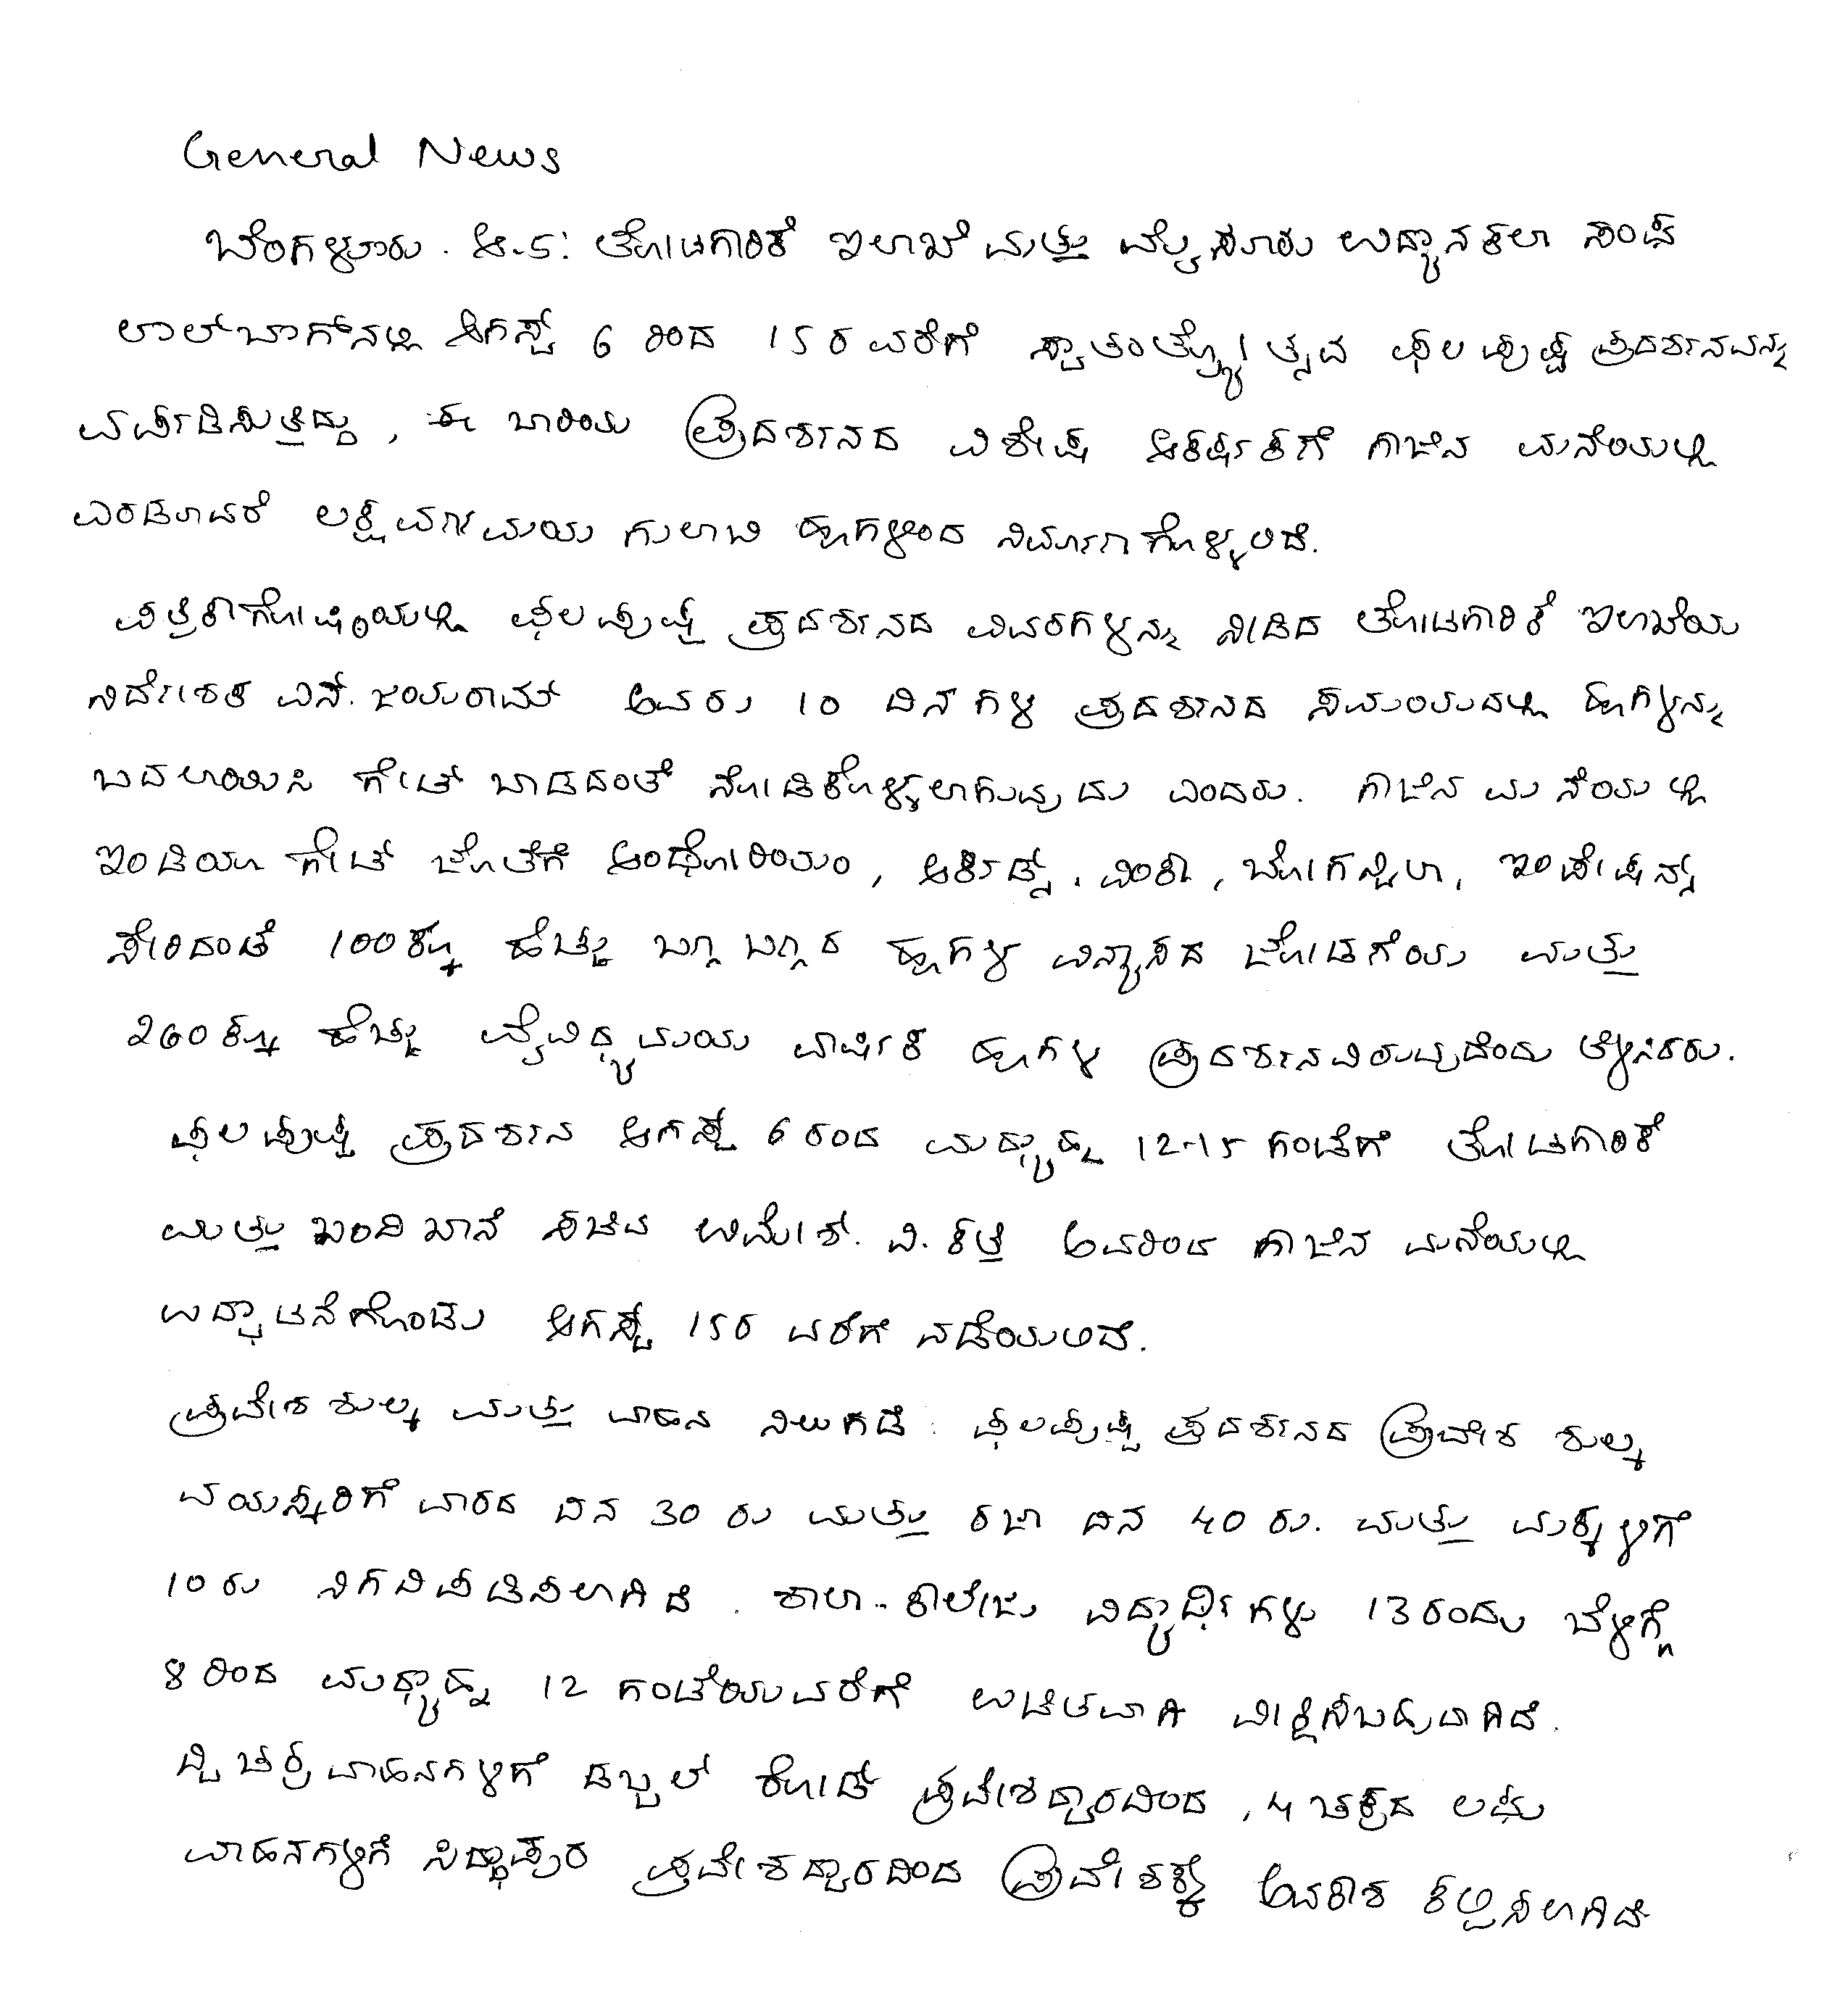 General News
ಬೆಂಗಳೂರು. ಆ.5: ತೋಟಗಾರಿಕೆ ಇಲಾಖೆ ಮತ್ತು ಮೈಸೂರು ಉದ್ಯಾನಕಲಾ ಸಂಘ
ಲಾಲ್‌ಬಾಗ್‌ನಲ್ಲಿ ಆಗಸ್ಟ್ 6 ರಿಂದ 15ರ ವರೆಗೆ ಸ್ವಾತಂತ್ರ್ಯೋತ್ಸವ ಫಲ ಪುಷ್ಪ ಪ್ರದರ್ಶನವನ್ನು
ಏರ್ಪಡಿಸುತ್ತಿದ್ದು, ಈ ಬಾರಿಯ ಪ್ರದರ್ಶನದ ವಿಶೇಷ ಆಕರ್ಷಕಗೆ ಗಾಜಿನ ಮನೆಯಲ್ಲಿ
ಎರಡೂವರೆ ಲಕ್ಷ ವರ್ಣಮಯ ಗುಲಾಬಿ ಹೂಗಳಿಂದ ನಿರ್ಮಾಣಗೊಳ್ಳಲಿದೆ.
ಪತ್ರಿಕಾಗೋಷ್ಠಿಯಲ್ಲಿ ಫಲ ಪುಷ್ಪ ಪ್ರದರ್ಶನದ ವಿವರಗಳನ್ನು ನೀಡಿದ ತೋಟಗಾರಿಕೆ ಇಲಾಖೆಯ
ನಿರ್ದೇಶಕ ಎನ್. ಜಯರಾಮ್ ಅವರು 10 ದಿನಗಳ ಪ್ರದರ್ಶನದ ಸಮಯದಲ್ಲಿ ಹೂಗಳನ್ನು
ಬದಲಾಯಿಸಿ ಗೇಟ್ ಬಾಡದಂತೆ ನೋಡಿಕೊಳ್ಳಲಾಗುವುದು ಎಂದರು. ಗಾಜಿನ ಮನೆಯಲ್ಲಿ
ಇಂಡಿಯಾ ಗೇಟ್ ಜೊತೆಗೆ ಆಂಥೋರಿಯಂ, ಆರ್ಕಿಡ್ಸ್, ವಿಂಕಾ, ಬೋಗನ್ವಿಲಾ, ಇಂಪೇಷನ್ಸ್
ಸೇರಿದಂತೆ 100ಕ್ಕೂ ಹೆಚ್ಚು ಬಗ್ಗೂ ಬಗ್ಗೂರ ಹೂಗಳ ವಿನ್ಯಾಸದ ಜೋಡಣೆಯು ಮತ್ತು
260ಕ್ಕೂ ಹೆಚ್ಚು ವೈವಿಧ್ಯಮಯ ವಾರ್ಷಿಕ ಹೂಗಳ ಪ್ರದರ್ಶನವಿರುವುದೆಂದು ತಿಳಿಸಿದರು.
ಫಲ ಪುಷ್ಪ ಪ್ರದರ್ಶನ ಆಗಸ್ಟ್ 6ರಂದು ಮಧ್ಯಾಹ್ನ 12-15 ಗಂಟೆಗೆ ತೋಟಗಾರಿಕೆ
ಮತ್ತು ಬಂದಿಖಾನೆ ಸಚಿವ ಉಮೇಶ್. ವಿ. ಕತ್ತಿ ಅವರಿಂದ ಗಾಜಿನ ಮನೆಯಲ್ಲಿ
ಉದ್ಘಾಟನೆಗೊಂಡು ಆಗಸ್ಟ್ 15ರ ವರೆಗೆ ನಡೆಯಲಿದೆ.
ಪ್ರವೇಶ ಶುಲ್ಕ ಮತ್ತು ವಾಹನ ನಿಲುಗಡೆ: ಫಲಪುಷ್ಪ ಪ್ರದರ್ಶನದ ಪ್ರವೇಶ ಶುಲ್ಕ
ವಯಸ್ಕರಿಗೆ ವಾರದ ದಿನ 30 ರು ಮತ್ತು ರಜಾ ದಿನ 40 ರು. ಮತ್ತು ಮಕ್ಕಳಿಗೆ
10ರು ನಿಗದಿಪಡಿಸಲಾಗಿದೆ. ಶಾಲಾ-ಕಾಲೇಜು ವಿದ್ಯಾರ್ಥಿಗಳು 13ರಂದು ಬೆಳಿಗ್ಗೆ
8ರಿಂದ ಮಧ್ಯಾಹ್ನ 12 ಗಂಟೆಯವರೆಗೆ ಉಚಿತವಾಗಿ ವೀಕ್ಷಿಸಬಹುದಾಗಿದೆ.
ದ್ವಿಚಕ್ರ ವಾಹನಗಳಿಗೆ ಡಬ್ಬಲ್ ರೋಡ್ ಪ್ರವೇಶದ್ವಾರದಿಂದ, 4 ಚಕ್ರದ ಲಘು
ವಾಹನಗಳಿಗೆ ಸಿದ್ಧಾಪುರ ಪ್ರವೇಶದ್ವಾರದಿಂದ ಪ್ರವೇಶಕ್ಕೆ ಅವಕಾಶ ಕಲ್ಪಿಸಲಾಗಿದೆ